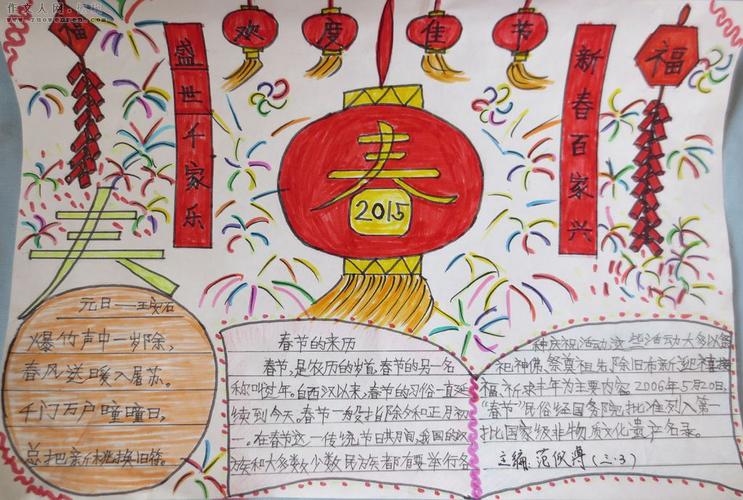 作文人网
www.zuowenren.com
欢度佳节
福
盛世千家乐
新春百家兴
福
春
2015
春
元日——王安石
爆竹声中一岁除,
春风送暖入屠苏。
千门万户曈曈日,
总把新桃换旧符。
春节的来历
春节,是农历的岁首,春节的另一名
称叫过年。自西汉以来,春节的习俗一直延
续到今天。春节一般指除夕和正月初
一。在春节这一传统节日其间,我国的汉
族和大多数少数民族都有要举行各
种庆祝活动,这些活动大多以祭
祀神佛、祭奠祖先、除旧布新、迎禧接
福、祈求丰年为主要内容。2006年5月20日,
“春节”民俗经国务院批准列入第一
批国家级非物质文化遗产名录。
主编:范仪溥(三·3)